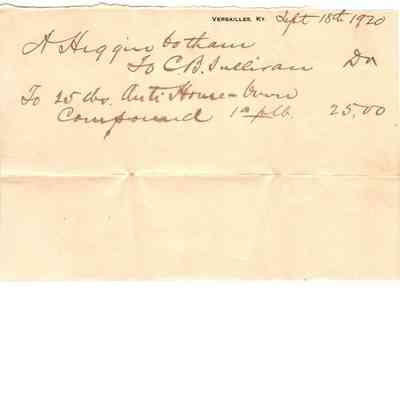 VERSAILLES, KY. Sept 18th 1920
A Higginbotham
To C.B. Sullivan Dr
To 25 lbs. Anti House-
Compound 1 00 p lb. 25,00